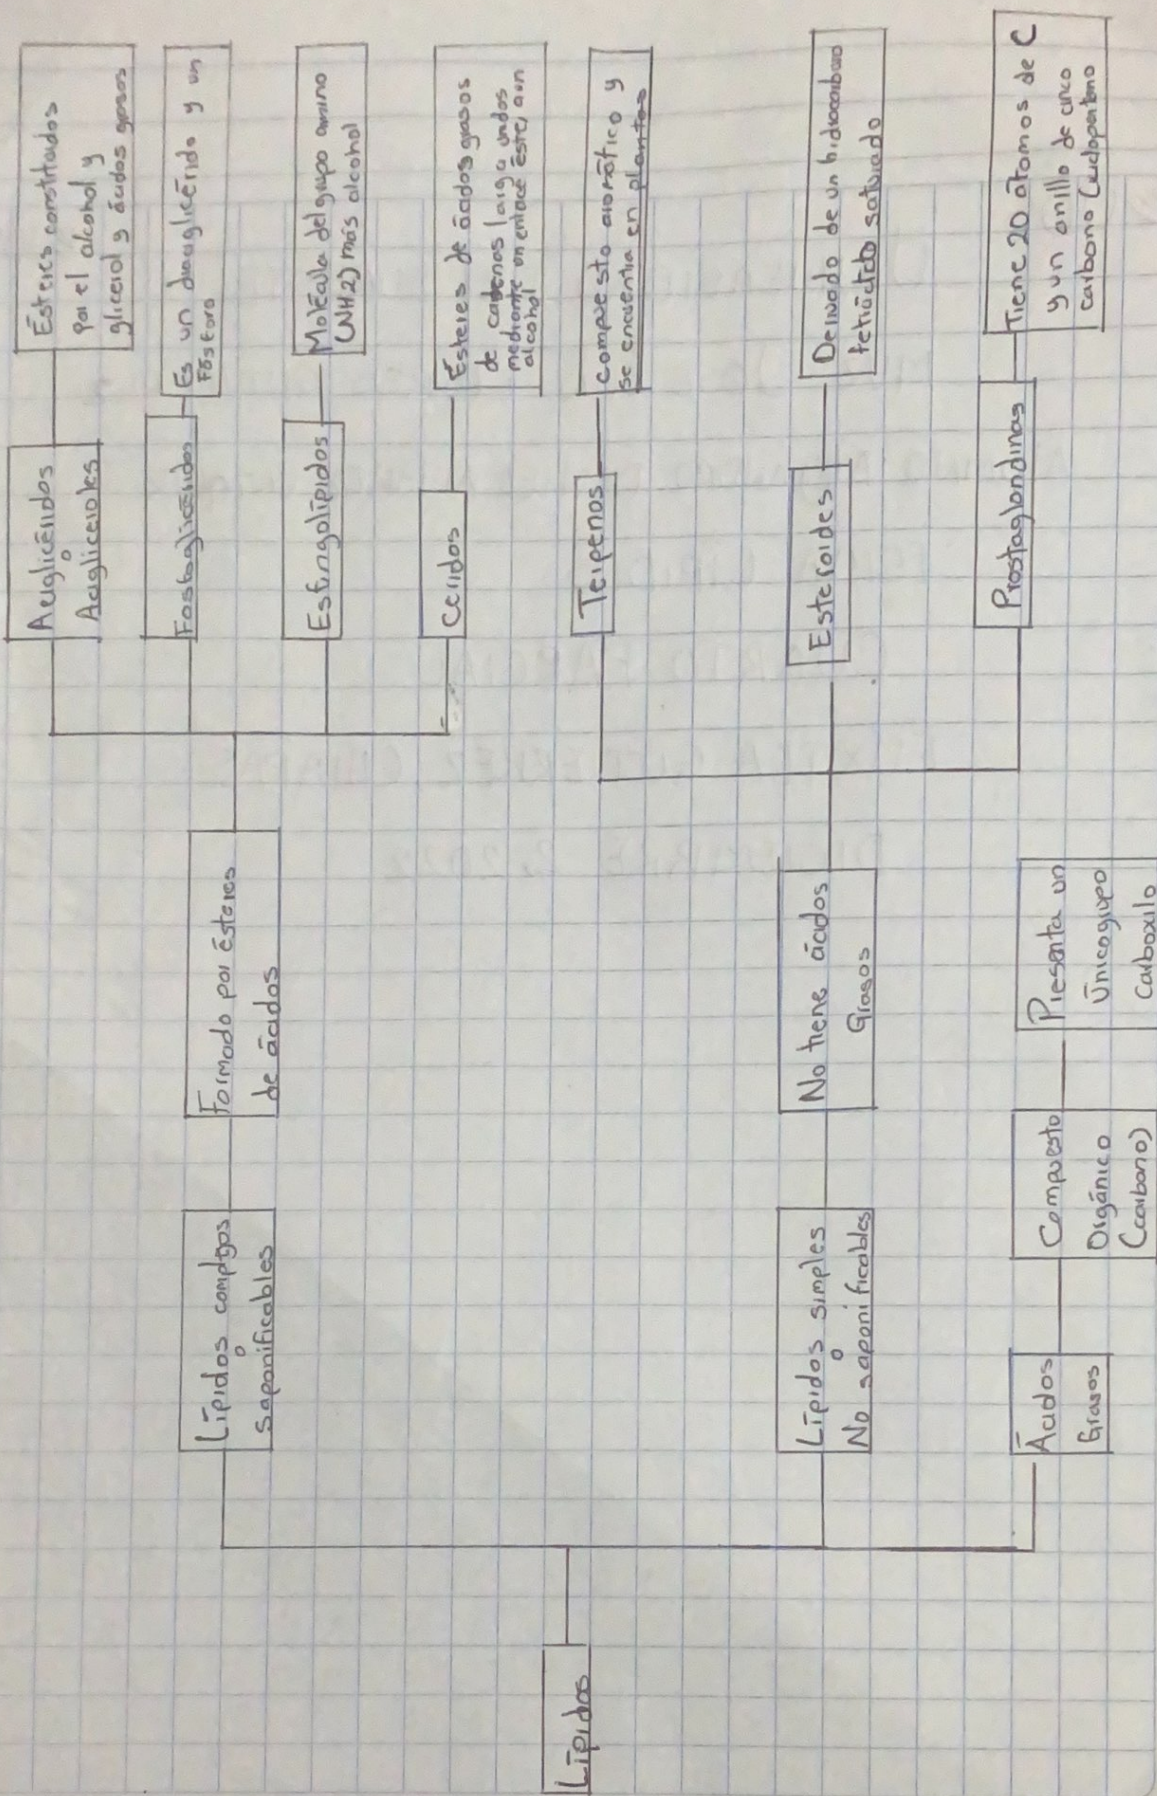 Lípidos
Lípidos complejos
o
saponificables
Formado por ésteres
de ácidos
Acilglicéridos
o
Acilgliceroles
Ésteres constituidos
por el alcohol y
glicerol y ácidos grasos
Fosfoglicéridos
Es un diacilglicérido y un
Fósforo
Esfingolípidos
Molécula del grupo amino
(NH2) más alcohol
Ceridos
Ésteres de ácidos grasos
de cadenas larga unidos
mediante un enlace éster, a un
alcohol
Lípidos simples
o
No saponificables
No tiene ácidos
Grasos
Terpenos
compuesto aromático y
se encuentra en plantas
Esteroides
Derivado de un hidrocarburo
saturado
Prostaglandinas
Tiene 20 átomos de C
y un anillo de cinco
carbono (ciclopentano
Ácidos
Grasos
Compuesto
Orgánico
(carbono)
Presenta un
Único grupo
Carboxilo